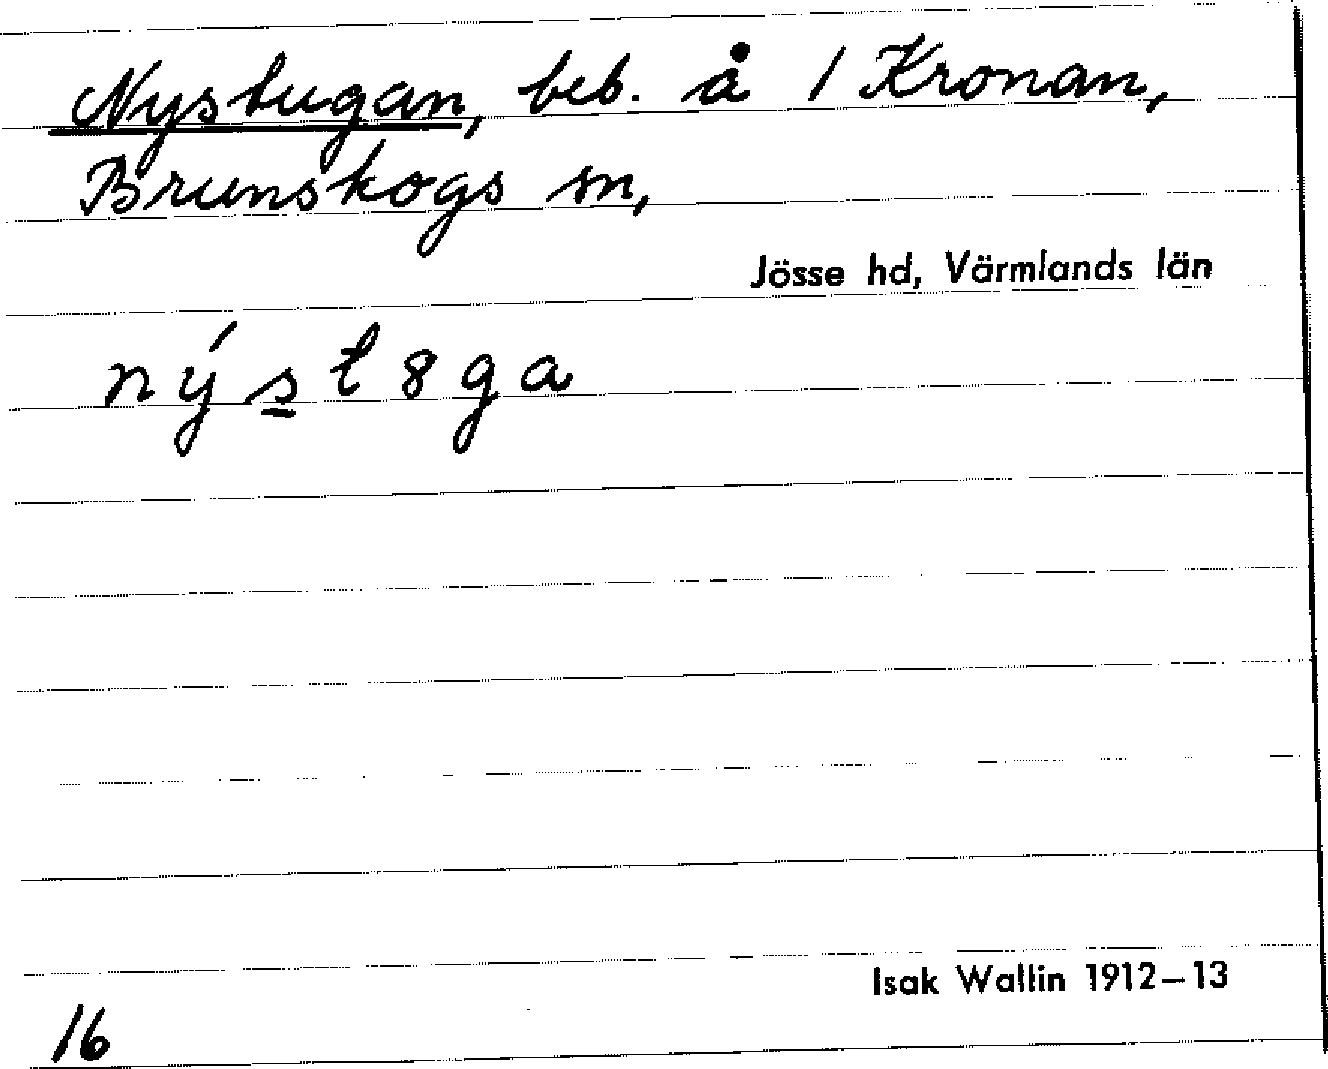 Nystugan, beb. å 1 Kronan,
Brunskogs sn,
Jösse hd, Värmlands län
nýs̲t8ga
Isak Wallin 1912–13
16